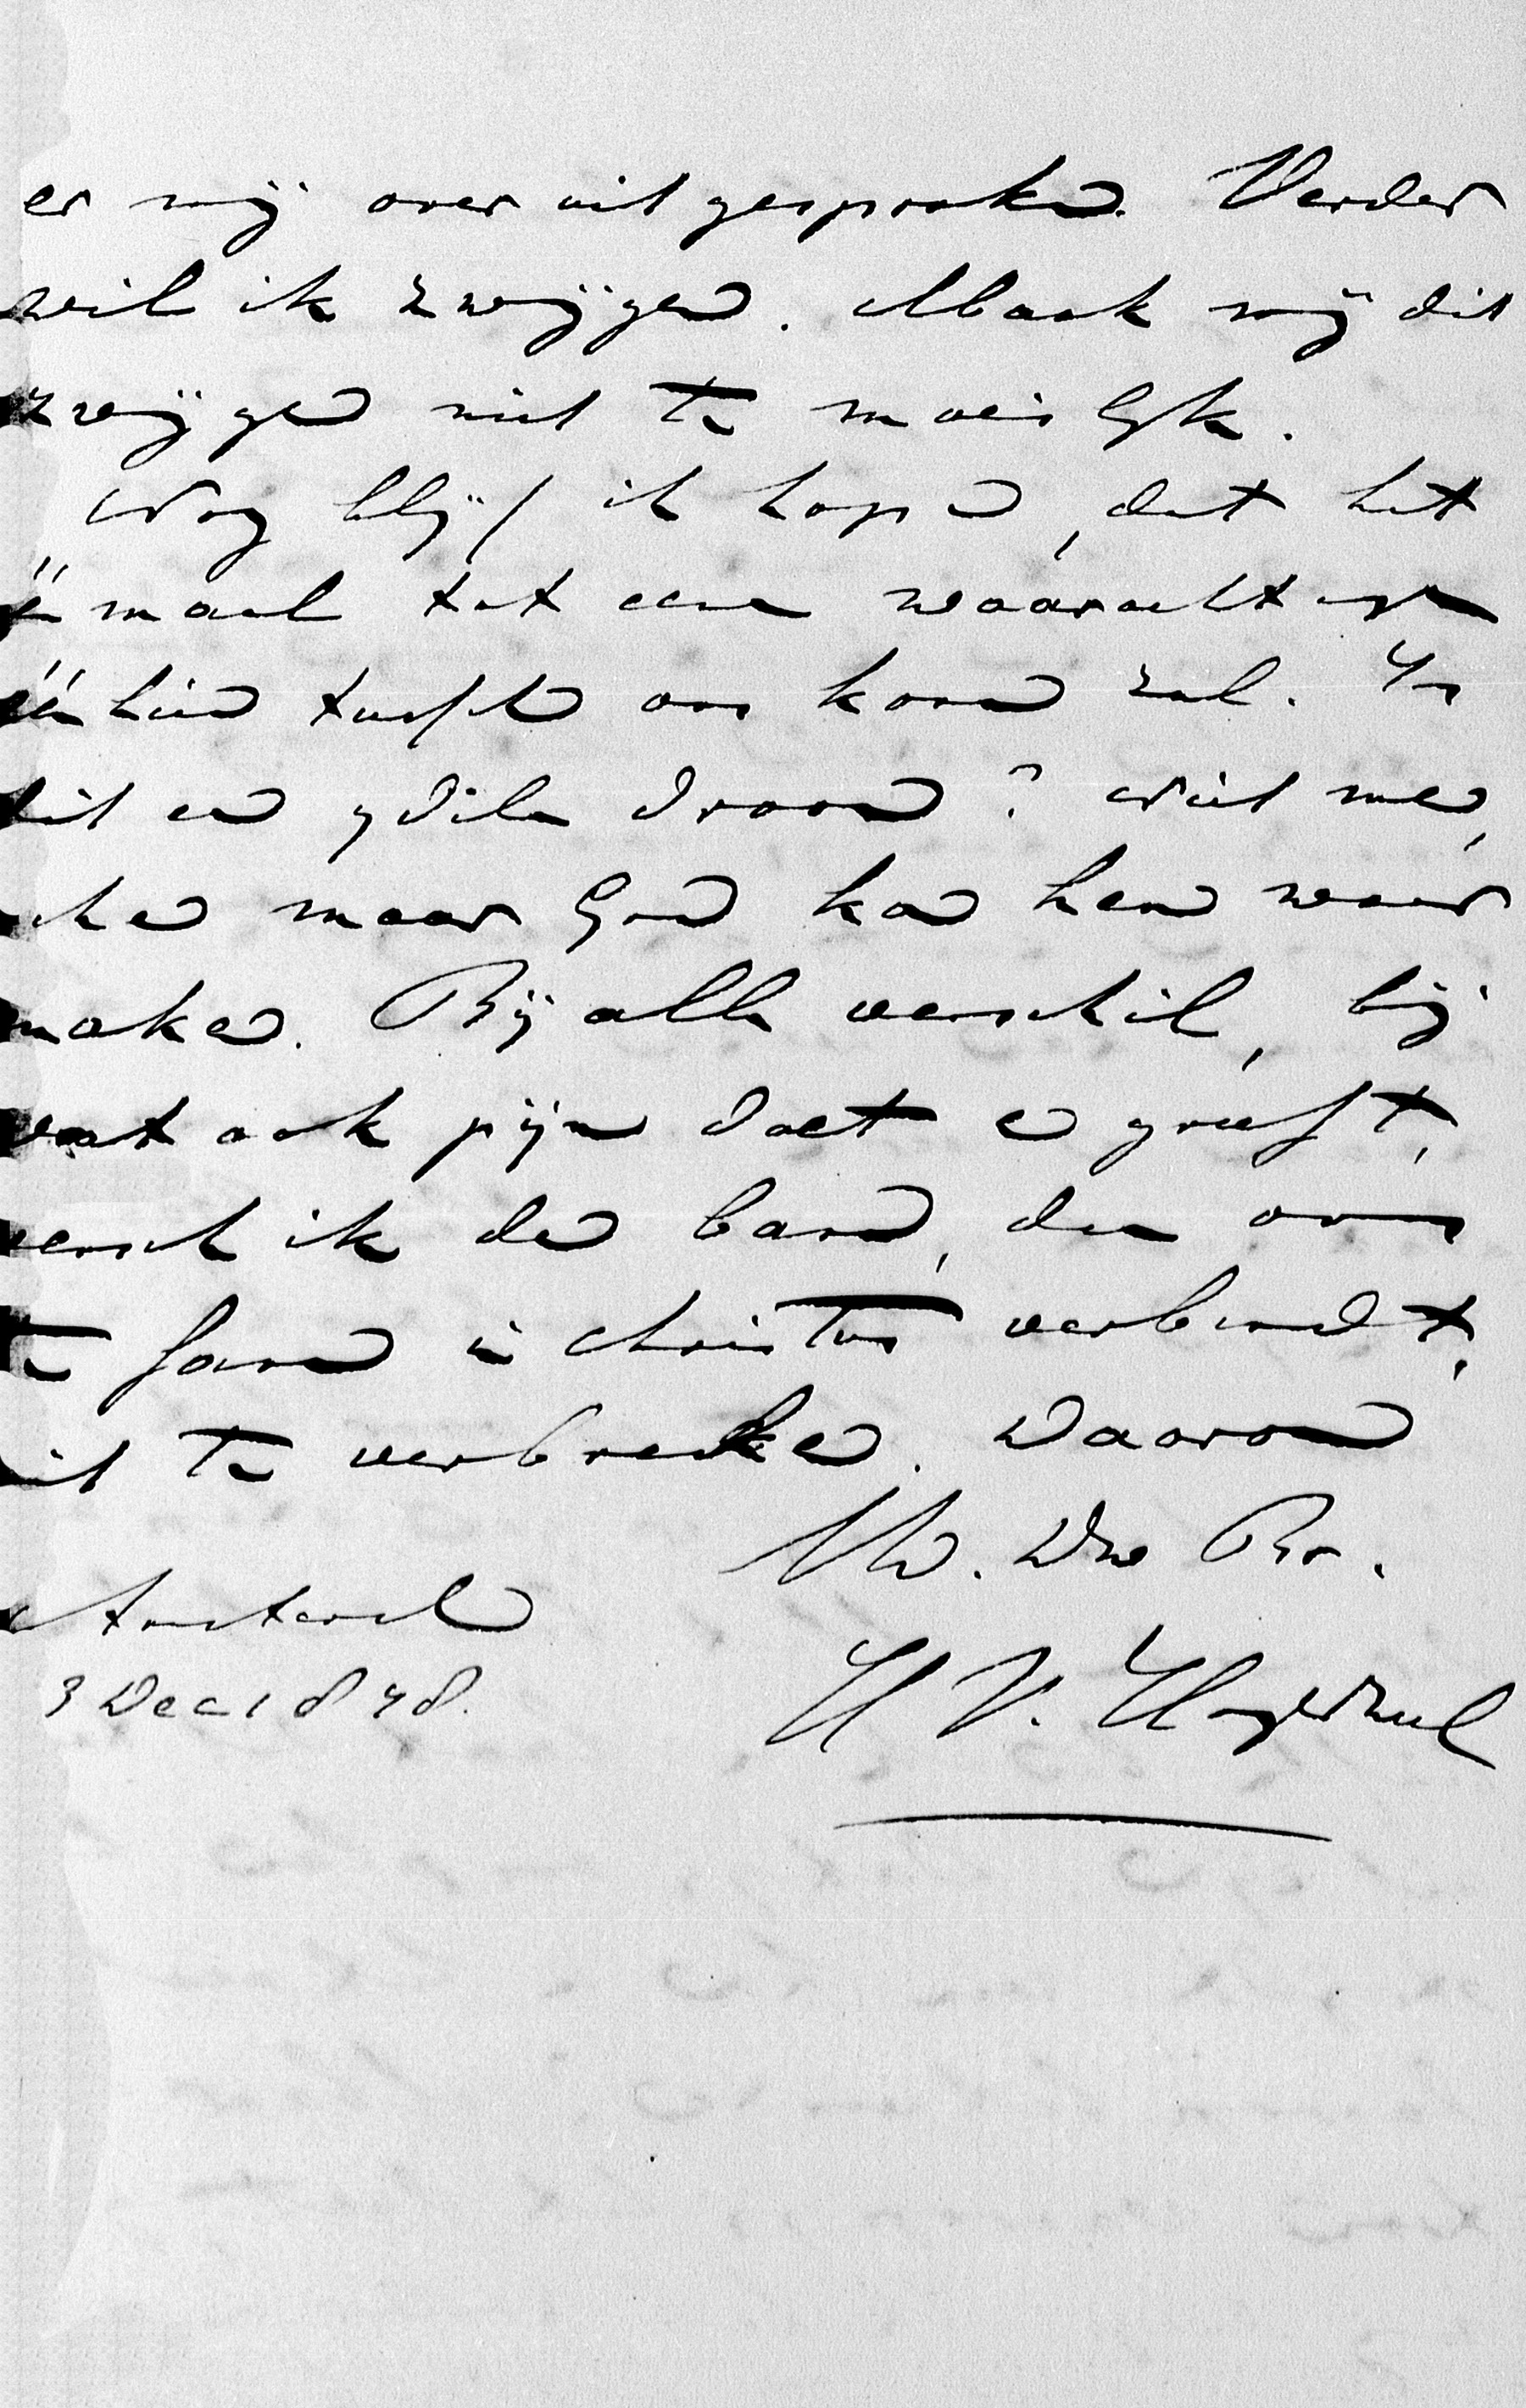 er mij over uitgesproken. Verder
wil ik zwijgen. Maak mij dit
zwijgen niet te moeilijk.
Nog blijf ik hopen, dat het
één maal tot eene waarachtige
éénheid tusschen ons komen zal. Is
dit een ydele droom? Niet men,
schen maar God kan hem waar
maken. Bij alle verschil, bij
wat ook pijn doet en grieft,
wensch ik den band, die ons
te samen in Christus verbindt,
niet te verbreken. Waarom
Uw. Dw Br.
Amsterd
3 Dec 1878.
H V. Hogerzeil